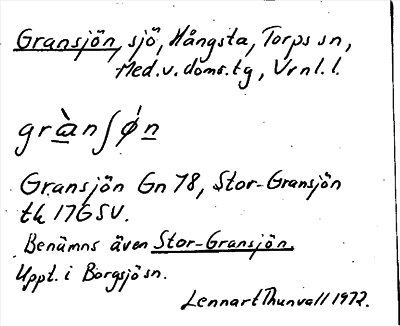 Gransjön, sjö, Hångsta, Torps sn,
Med.v.doms.tg, Vrnl.l.
gràn∫ǿn
Gransjön Gn 78, Stor-Gransjön
tk 17G SV.
Benämns även Stor-Gransjön.
Uppt. i Borgsjö sn.
Lennart Thunvall 1972.